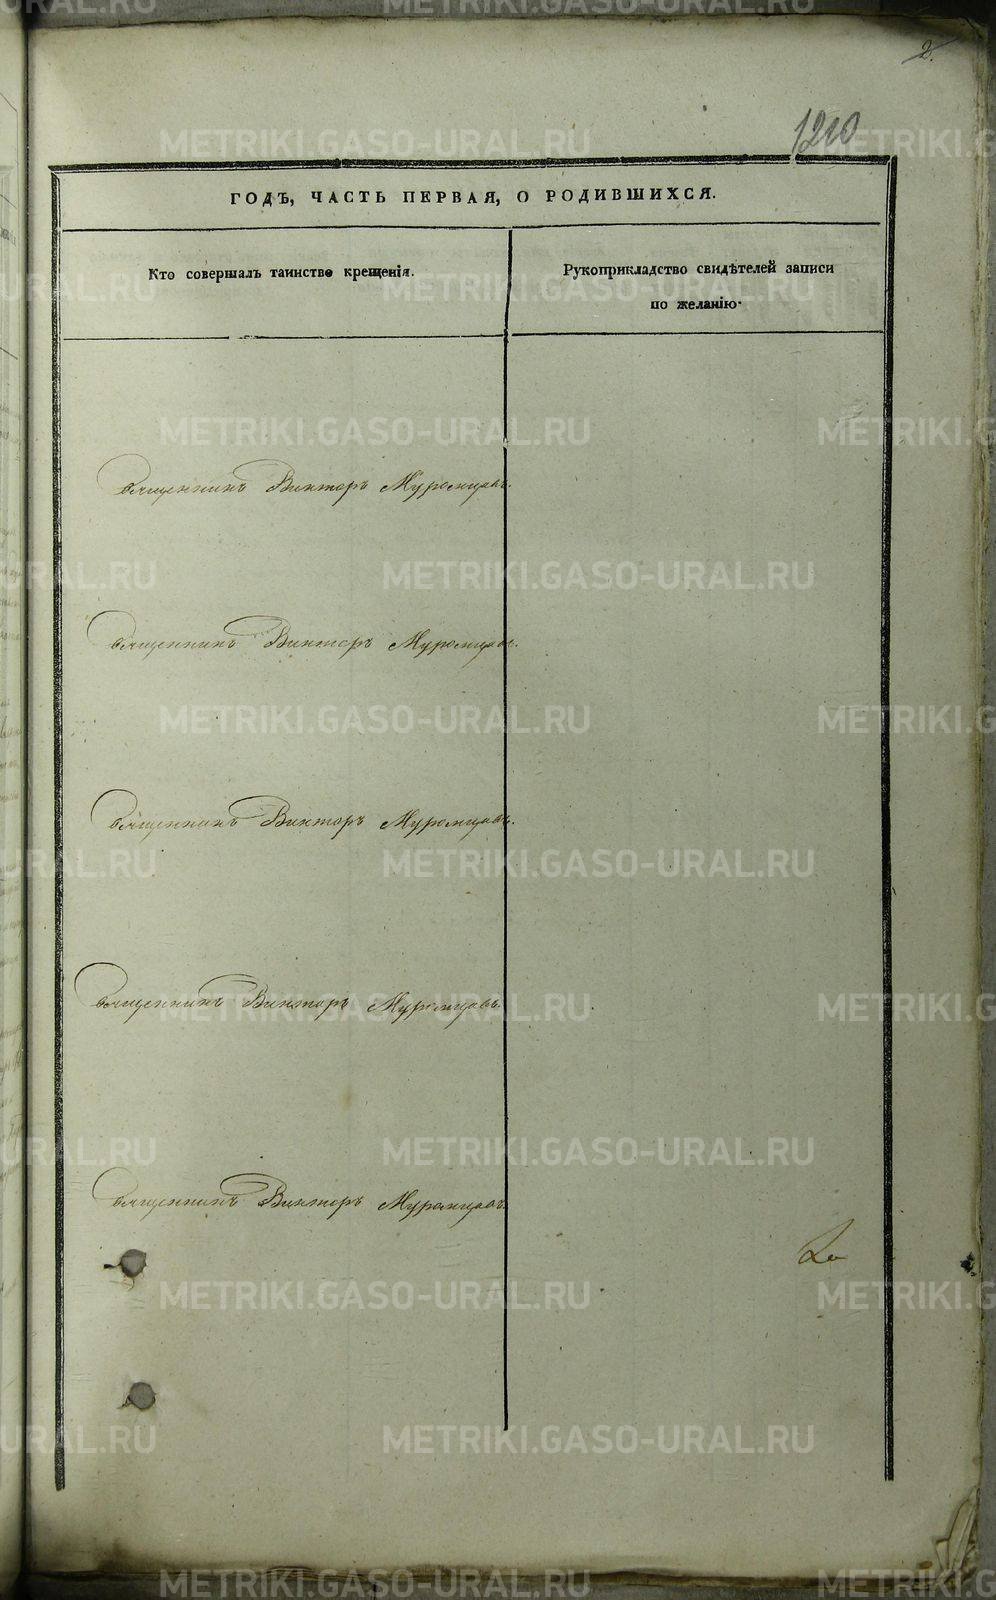 2.
1210
ГОДЪ, ЧАСТЬ ПЕРВАЯ, О РОДИВШИХСЯ.
Кто совершалъ таинство крещенія.
Рукоприкладство свидѣтелей записи
по желанію.
Священникъ Викторъ Муромцовъ.
Священникъ Викторъ Муромцовъ.
Священникъ Викторъ Муромцовъ.
Священникъ Викторъ Муромцовъ.
Священникъ Викторъ Муромцовъ.
METRIKI.GASO-URAL.RU